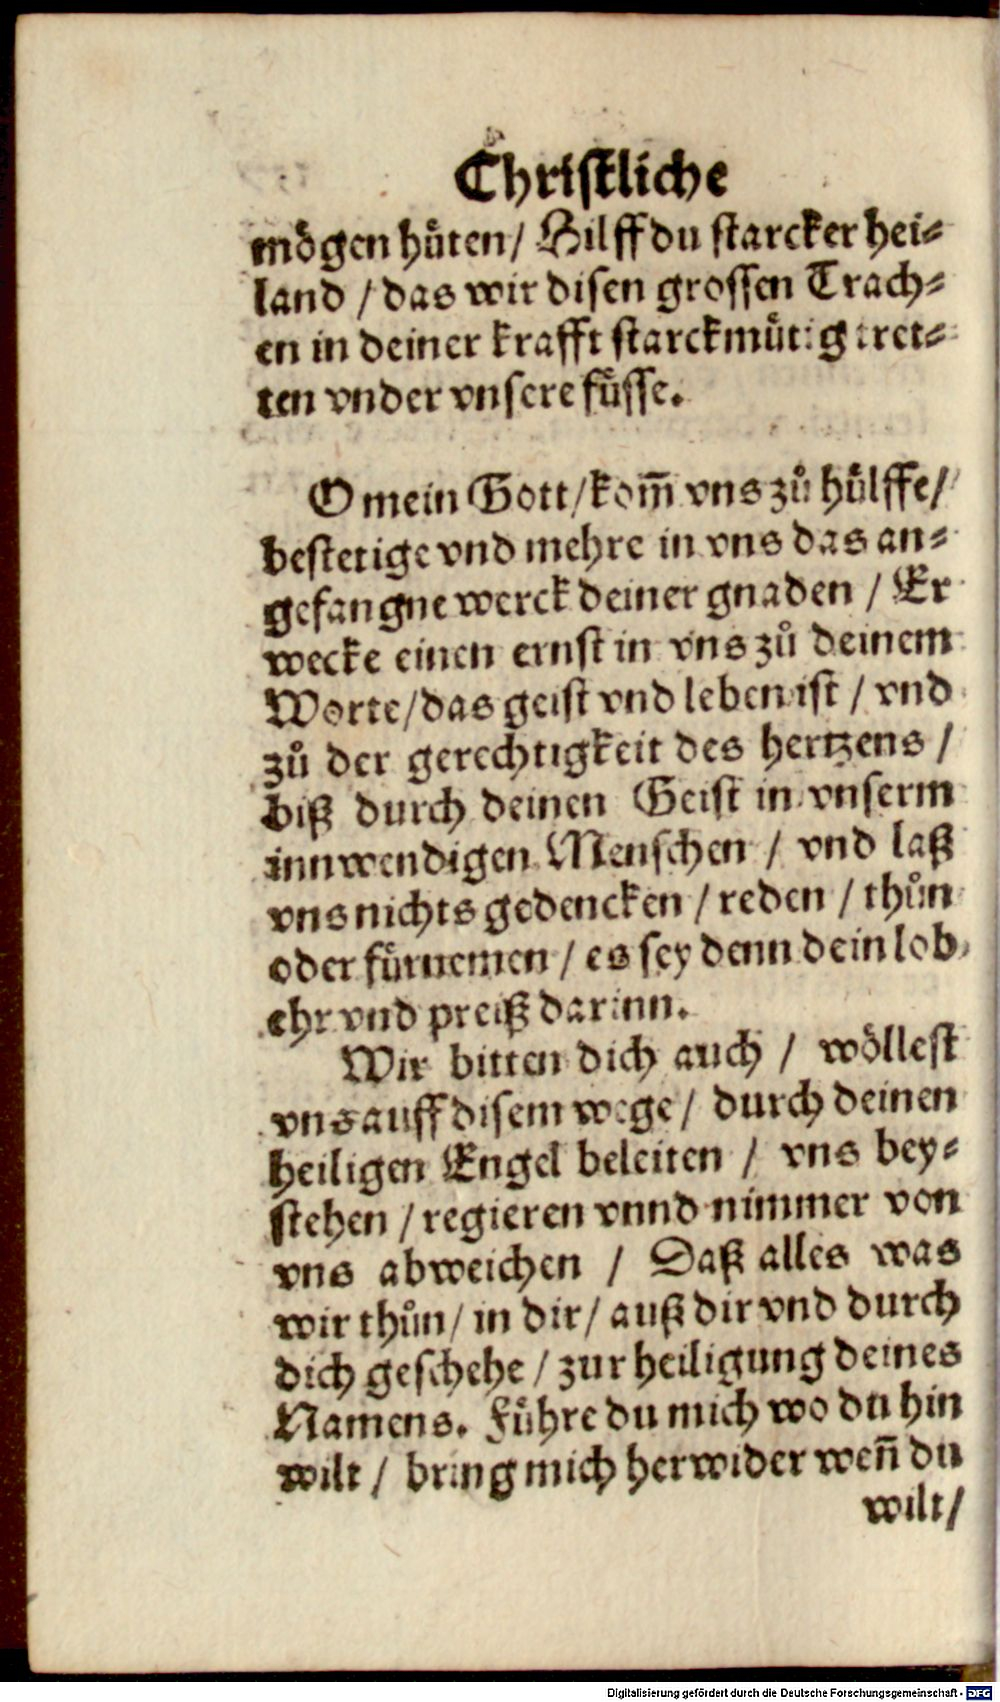 Christliche
mögen hüten/ Hilff du starcker hei⸗
land / das wir disen grossen Trach⸗
en in deiner krafft starckmütig tret⸗
ten vnder vnsere füsse.
O mein Gott/ kom̃ vns zů hülffe/
bestetige vnd mehre in vns das an⸗
gefangne werck deiner gnaden / Er
wecke einen ernst in vns zů deinem
Worte/ das geist vnd leben ist / vnd
zů der gerechtigkeit des hertzens /
biß durch deinen Geist in vnserm
innwendigen Menschen / vnd laß
vns nichts gedencken / reden / thůn
oder fürnemen / es sey denn dein lob,
ehr vnd preiß darinn.
Wir bitten dich auch / wöllest
vns auff disem wege / durch deinen
heiligen Engel beleiten / vns bey⸗
stehen / regieren vnnd nimmer von
vns abweichen / Daß alles was
wir thůn / in dir / auß dir vnd durch
dich geschehe / zur heiligung deines
Namens. Führe du mich wo du hin
wilt / bring mich herwider weñ du
wilt /
Digitalisierung gefördert durch die Deutsche Forschungsgemeinschaft - DFG